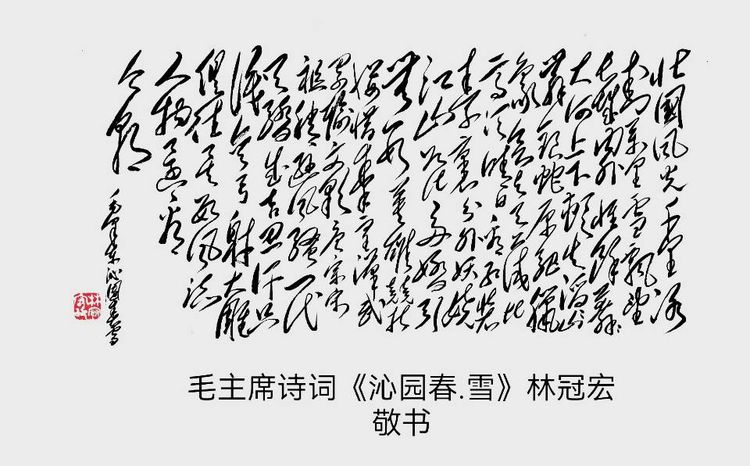 北國风光千里冰
封万里雪飘望
长城内外惟余莽莽
大河上下顿失滔滔山
舞银蛇原驰蜡
象欲与天公试比
高须晴日看红装
素裹分外妖娆
江山如此多娇引
无数英雄竞折
腰惜秦皇汉武
略输文采唐宗宋
祖稍逊风骚一代
天骄成吉思汗只
识弯弓射大雕
俱往矣数风流
人物还看
今朝
毛泽东沁园春雪
毛主席诗词《沁园春.雪》林冠宏
敬书